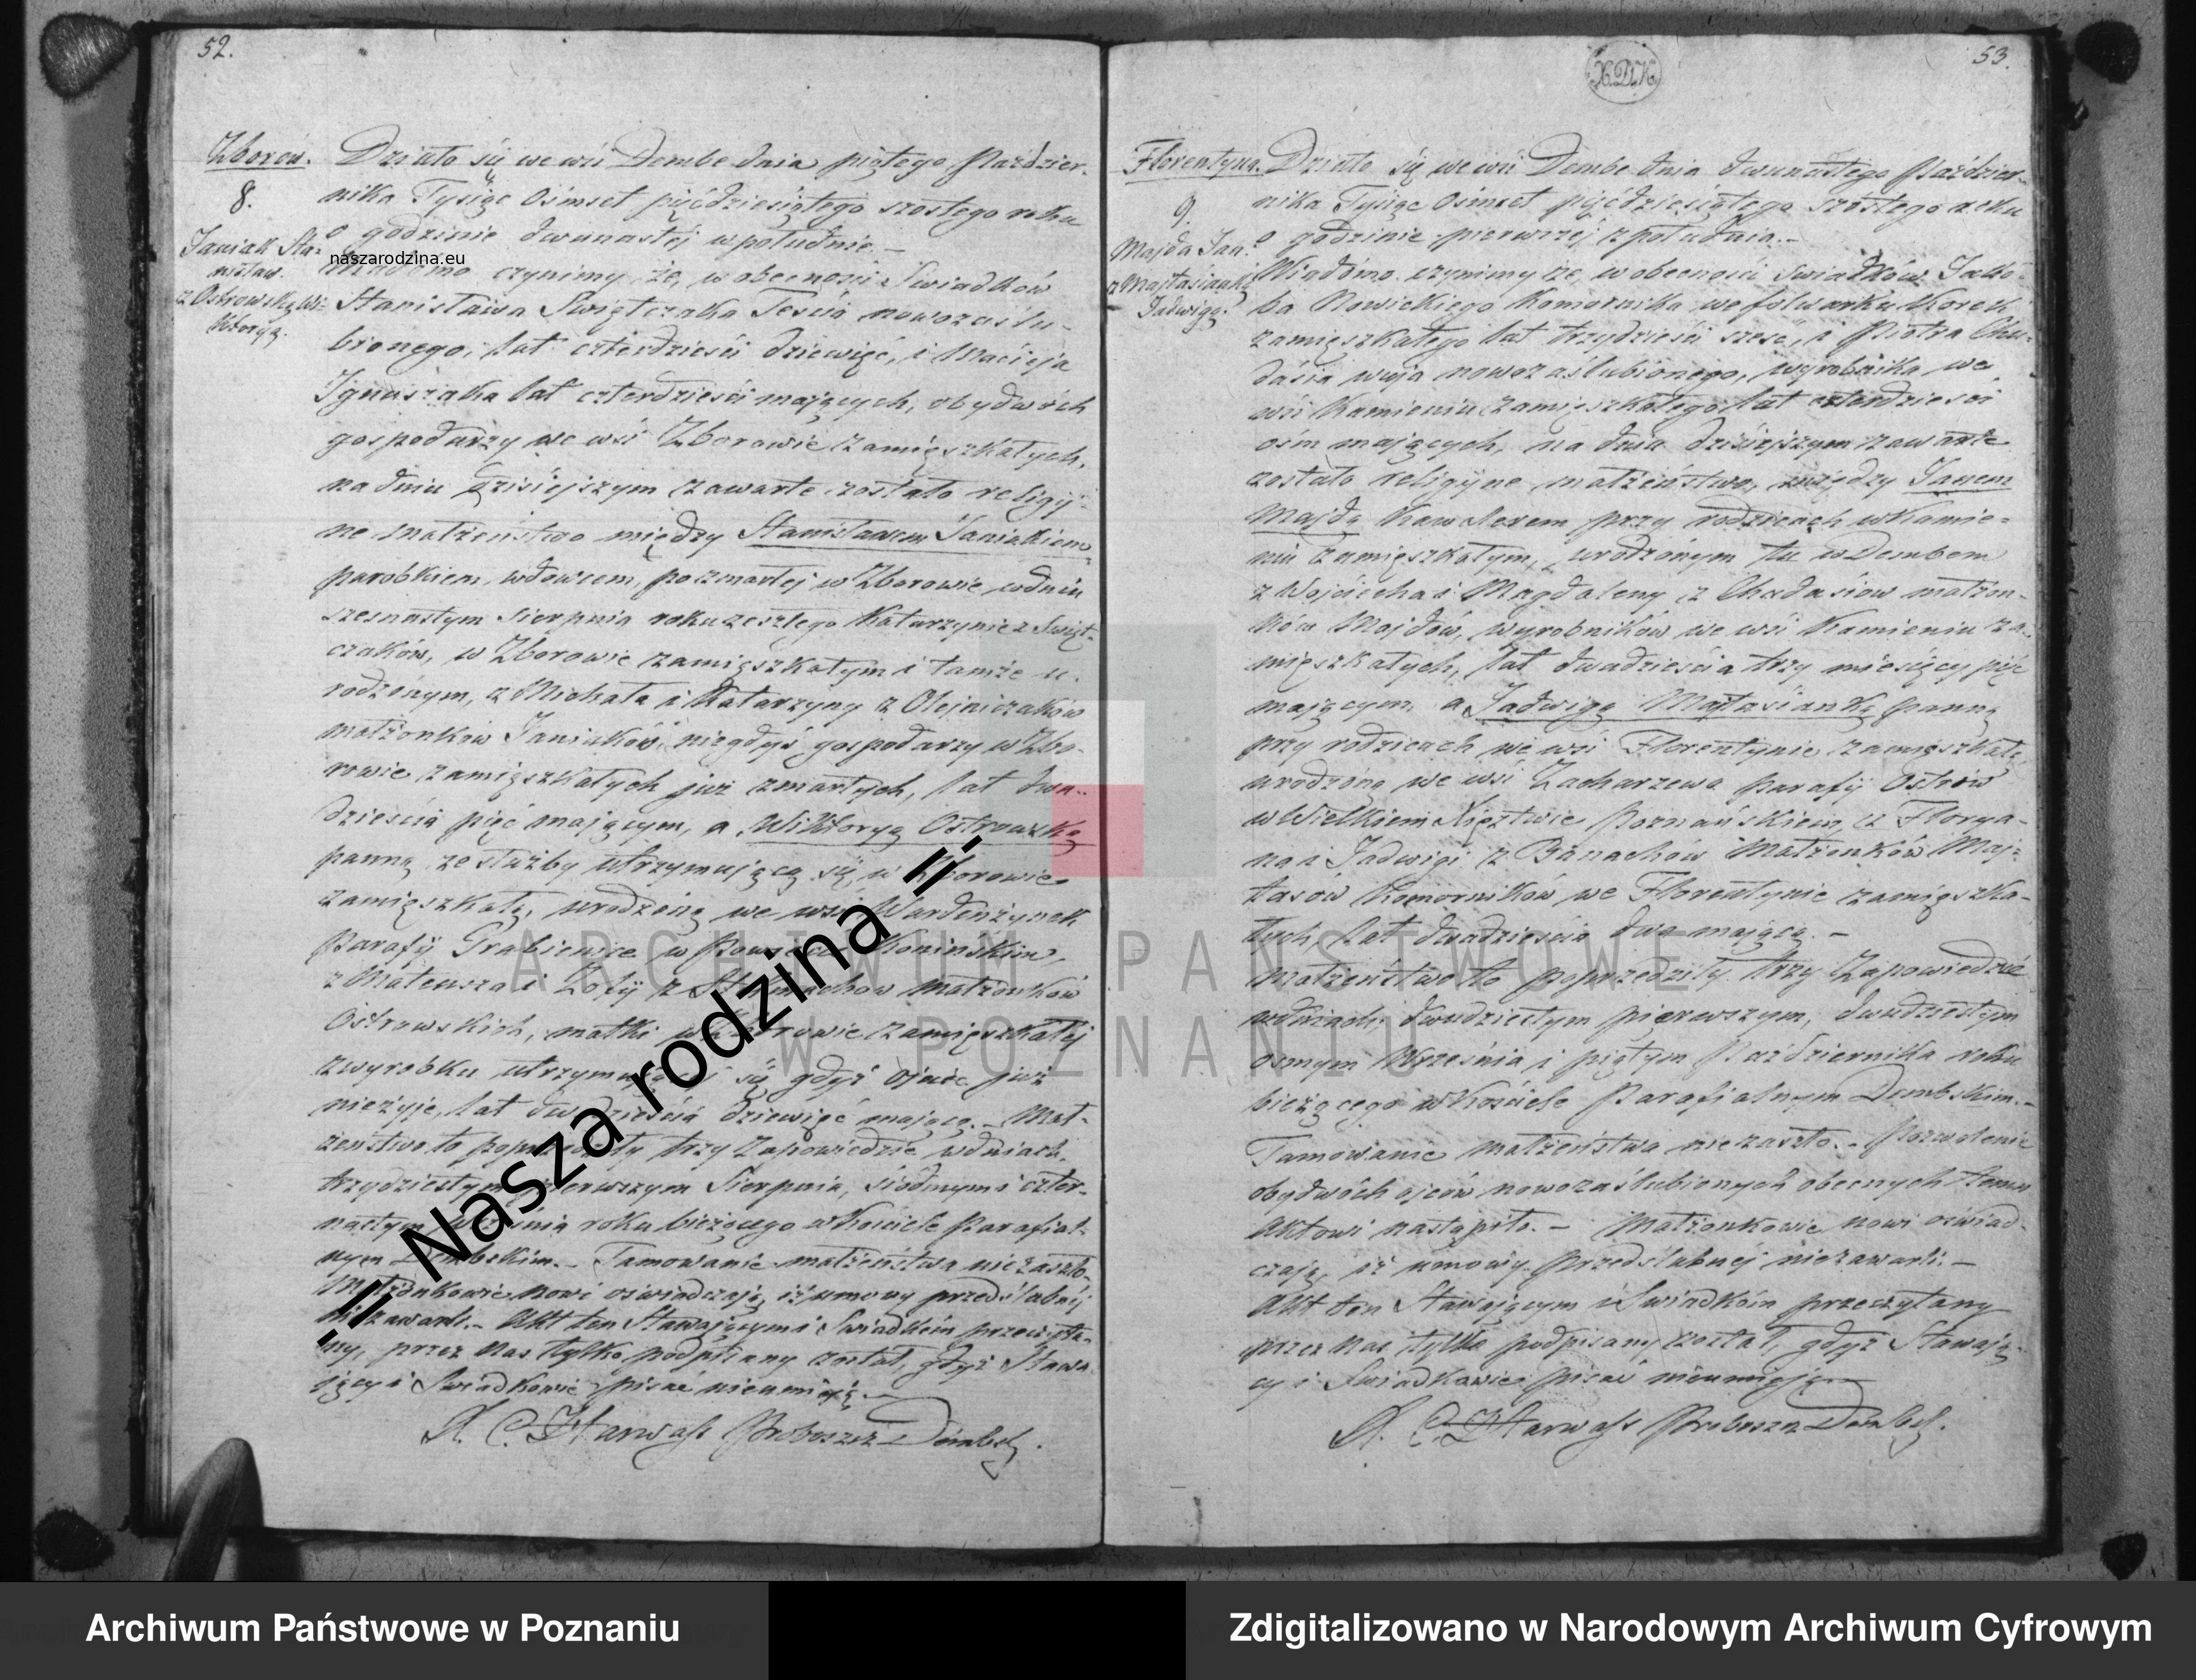 52.
Zborów.
8.
Janiak Sta=
nisław.
z Ostrowską Wi=
ktoryą.
Działo się we wsi Dembe dnia piątego Paździer-
nika Tysiąc Ośmset pięćdziesiątego szóstego roku
o godzinie dwunastej w południe. —
Wiadomo czynimy że, w obecności Świadków
Stanisława Świętczaka Teścia nowozaślu-
bionego, lat czterdzieści dziewięć, i Macieja
lat czterdzieści mających, obydwóch
gospodarzy we wsi Zborowie zamięszkałych,
na dniu dzisiejszym zawarte zostało religij-
ne małżeństwo między Stanisławem Janiakiem
parobkiem, wdowcem, po zmarłej w Zborowie w dniu
szesnastym Sierpnia roku zeszłego Katarzynie z Święt-
czaków, w Zborowie zamięszkałym i tamże u-
rodzonym, z Michała i Katarzyny z Olejniczaków
małżonków Janiaków, niegdyś gospodarzy w Zbo-
rowie zamięszkałych już zmarłych, lat dwa-
dzieścia pięć mającym, a Wiktoryą Ostrowską
panną, ze służby utrzymującą się, w Zborowie
zamięszkałą, urodzoną we wsi Wardężynek
Parafij Grabienice w Powiecie Konińskim,
z Mateusza i Zofij z małżonków
Ostrowskich, matki w Zborowie zamięszkałej
z wyrobku utrzymującej się gdyż ojciec już
nieżyje, lat dwadzieścia dziewięć mającą. — Mał-
żeństwo to poprzedziły trzy Zapowiedzie w dniach,
trzydziestym pierwszym Sierpnia, siódmym i czter-
nastym Września roku bieżącego w Kościele Parafial-
nym Dembskim. — Tamowanie małżeństwa nie zaszło.
Małżonkowie nowi oświadczają, iż umowy przedślubnej
niezawarli. — Akt ten Stawającym i Świadkom przeczyta-
ny, przez Nas tylko podpisany został, gdyż Stawa-
jący i Świadkowie pisać nieumieją. —
X. C. Harwass Proboszcz Dembsk.
53.
X.D.K.
Florentyna.
9.
Majda Jan.
z Majtasianką
Jadwigą.
Działo się we wsi Dembe dnia dwunastego Paździer-
nika Tysiąc Ośmset pięćdziesiątego szóstego roku
o godzinie pierwszej z południa. —
Wiadomo czynimy że, w obecności Świadków Jakó-
ba Nowickiego Komornika we folwarku
zamięszkałego lat trzydzieści sześć, i Piotra Cha-
dasia wuja nowozaślubionego, wyrobnika we
wsi Kamieniu zamięszkałego lat czterdzieści
ośm mających, na dniu dzisiejszym zawarte
zostało religijne małżeństwo, między Janem
Majdą Kawalerem przy rodzicach w Kamie-
niu zamięszkałym, urodzonym tu w Dembem
z Wojciecha i Magdaleny z Chadasiow małżon-
ków Majdów, wyrobników we wsi Kamieniu za-
mięszkałych, lat dwadzieścia trzy miesięcy pięć
mającym, a Jadwigą Majtasianką panną
przy rodzicach we wsi Florentynie zamięszkałą
urodzoną we wsi Zacharzewo Parafij Ostrów
w Wielkiem Xięztwie Poznańskiem, z Florya-
na i Jadwigi z Banachów Małżonków Maj=
tasów Komorników we Florentynie zamięszka-
łych lat dwadzieścia dwa mającą. —
Małżeństwo to poprzedziły trzy Zapowiedzie
w dniach; dwudziestym pierwszym, dwudziestym
osmym Września i piątym Października roku
bieżącego w Kościele Parafialnym Dembskim. —
Tamowanie małżeństwa nie zaszło. — Pozwolenie
obydwóch ojców nowozaślubionych obecnych temu
Aktowi nastąpiło. — Małżonkowie nowi oświad-
czają, iż umowy przedślubnej niezawarli. —
Akt ten Stawającym i Świadkom przeczytany
przez Nas tylko podpisany został, gdyż Stawają-
cy i Świadkowie pisać nieumieją. —
X. C. Harwass Proboszcz Dembsk.
naszarodzina.eu
-- Nasza rodzina --
ARCHIWUM PAŃSTWOWE
W POZNANIU
Archiwum Państwowe w Poznaniu
Zdigitalizowano w Narodowym Archiwum Cyfrowym